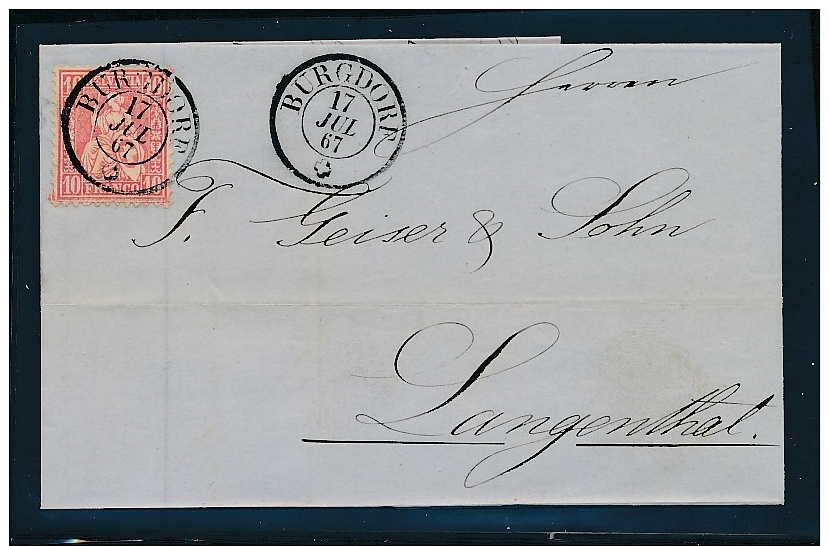 BURGDORF
17
JUL
67
BURGDORF
17
JUL
67
10 FRANCO 10
Herren
F. Geiser & Sohn
Langenthal.